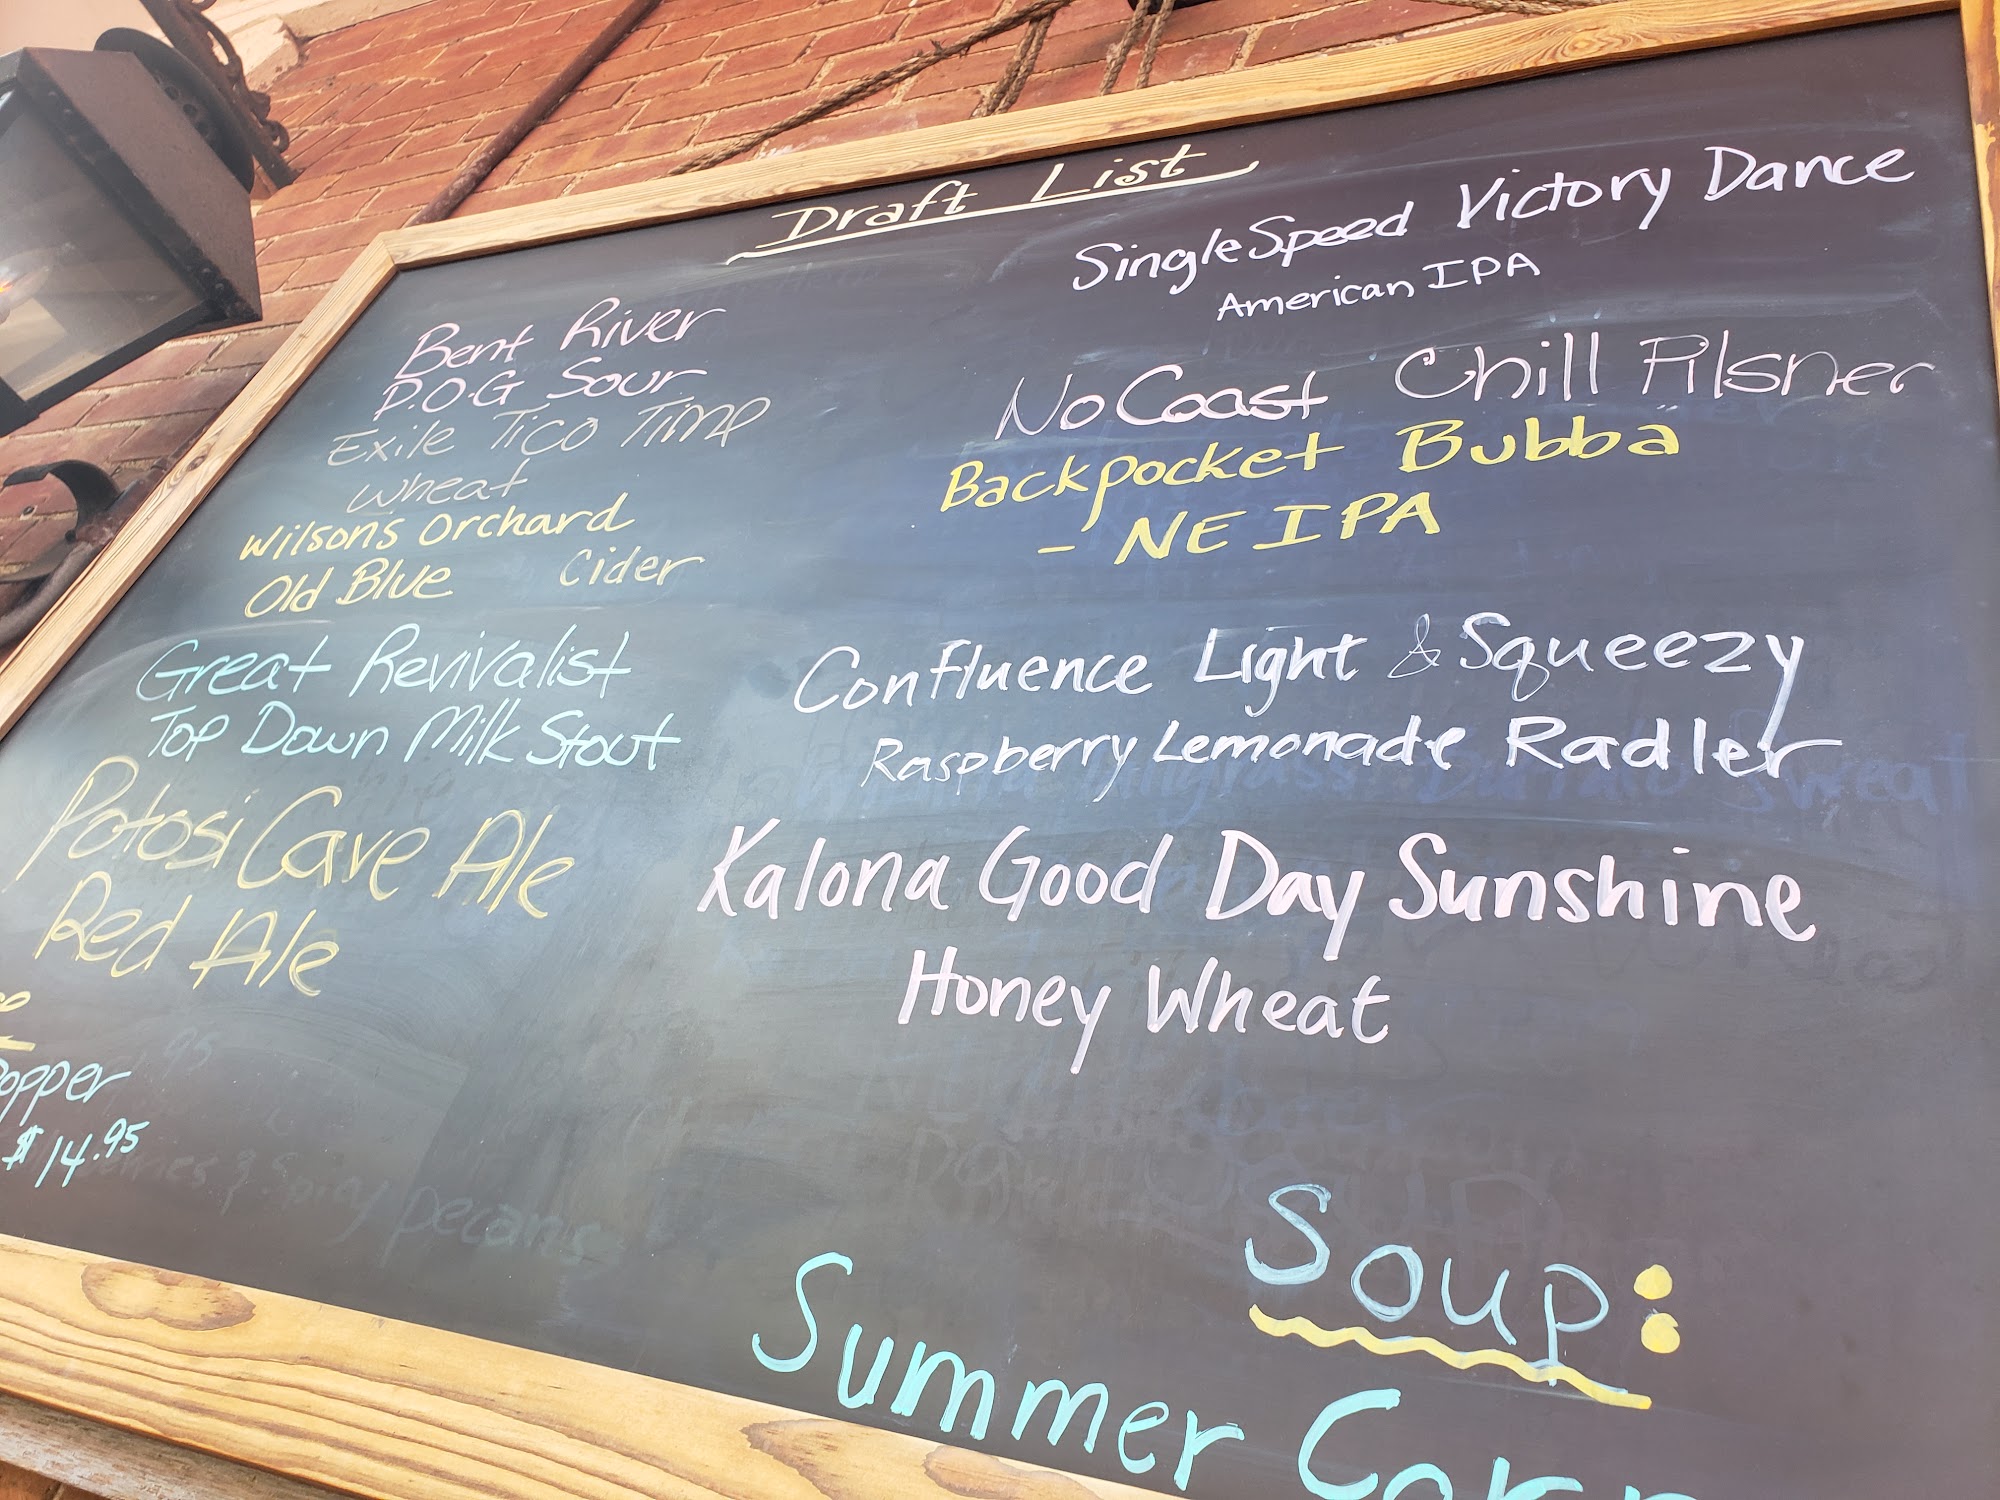 Draft List
Bent River
P.O.G Sour
Exile Tico Time
Wheat
Wilsons Orchard
Old Blue Cider
Great Revivalist
Top Down Milk Stout
Potosi Cave Ale
Red Ale
opper
$14.95
SingleSpeed Victory Dance
American IPA
No Coast Chill Pilsner
Backpocket Bubba
- NE IPA
Confluence Light & Squeezy
Raspberry Lemonade Radler
Kalona Good Day Sunshine
Honey Wheat
Soup:
Summer Corn